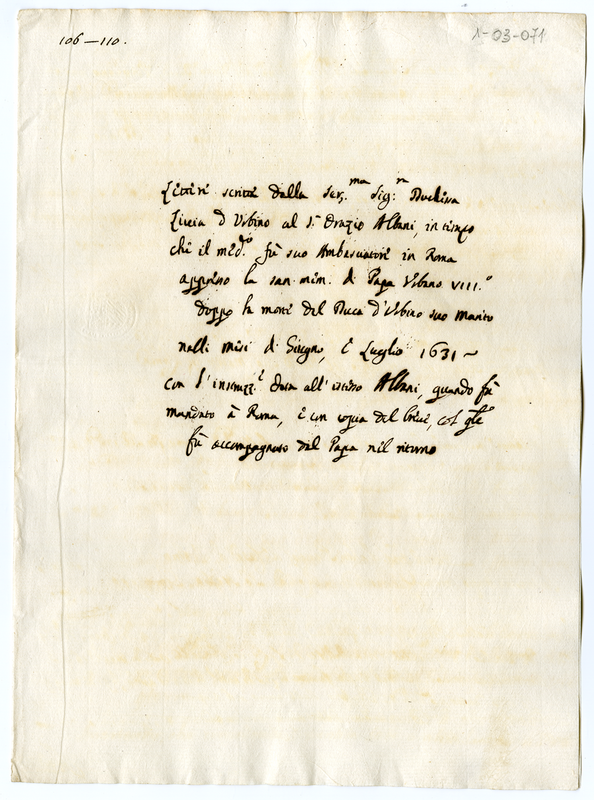 106 — 110.
1-03-071
Lettere scritte dalla Ser.ma Sig.ra Duchessa
Livia d Urbino al S.r Orazio Albani, in tempo
che il med.o fù suo Ambasciatore in Roma
appresso la san. mem. di Papa Urbano VIII.o
doppo la morte del Duca d'Urbino suo marito
nelli mesi di Giugno, e Luglio 1631 ~
con l'instruzz.e data all'istesso Albani, quando fù
mandato à Roma, e con copia del breve, col qle
fù accompagnato dal Papa nel ritorno